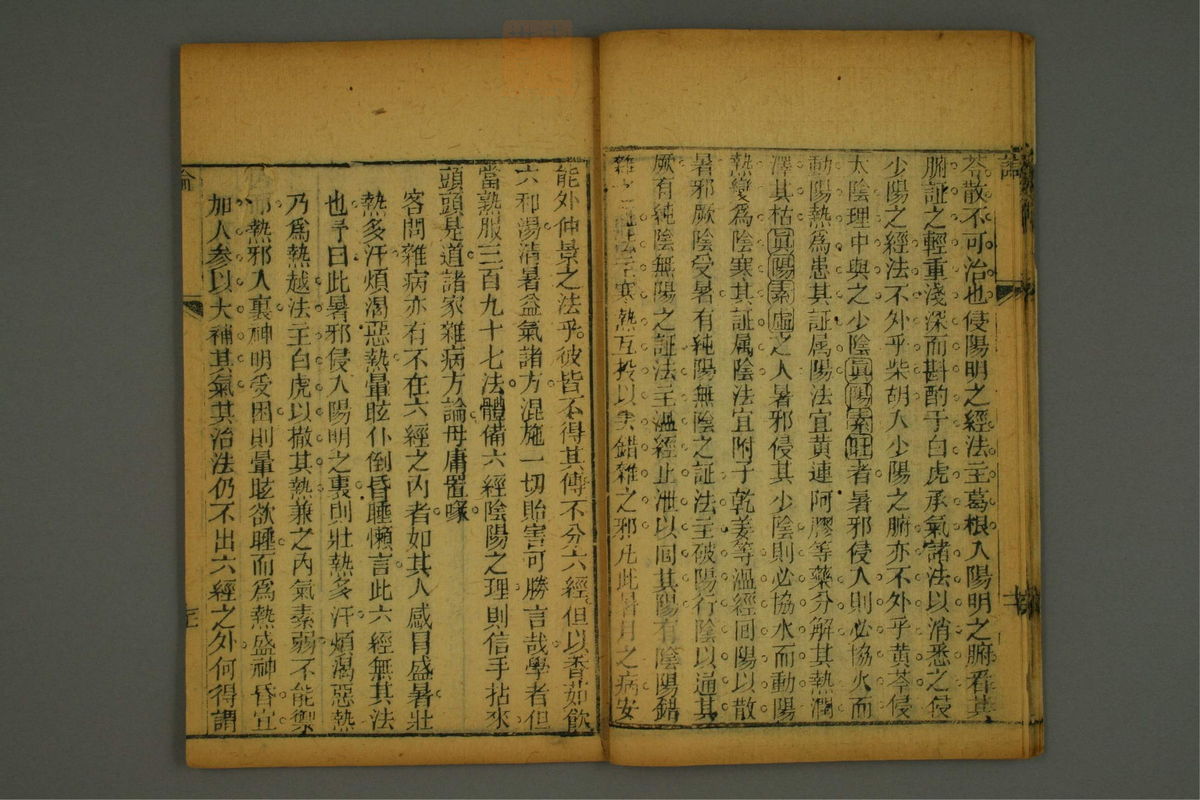 苓散不可治也侵陽明之經法主葛根入陽明之腑看其
腑証之輕重淺深而斟酌于白虎承氣諸法以消悉之侵
少陽之經法不外乎柴胡入少陽之腑亦不外乎黄芩侵
太陰理中與之少陰眞陽素旺者暑邪侵入則必協火而
動陽熱爲患其証属陽法宜黄連阿膠等藥分解其熱潤
澤其枯眞陽素虛之人暑邪侵其少陰則必協水而動陽
熱變爲陰寒其証属陰法宜附子乾姜等溫經囬陽以散
暑邪厥陰受暑有純陽無陰之証法主破陽行陰以通其
厥有純陰無陽之証法主溫經止泄以囬其陽有陰陽錯
雜之証法主寒熱互投以去錯雜之邪凡此暑月之病安
能外仲景之法乎彼皆不得其傳不分六經但以香茹飲
六和湯清暑益氣諸方混施一切貽害可勝言哉學者但
當熟服三百九十七法體備六經陰陽之理則信手拈來
頭頭是道諸家雜病方論毋庸置喙
客問雜病亦有不在六經之內者如其人感冒盛暑壯
熱多汗煩渴惡熱暈眩仆倒昏睡懶言此六經無其法
也予曰此暑邪侵入陽明之裏則壯熱多汗煩渴惡熱
乃爲熱越法主白虎以撤其熱兼之內氣素弱不能禦
熱邪入裏神明受困則暈眩欲睡而爲熱盛神昏宜
加人参以大補其氣其治法仍不出六經之外何得謂